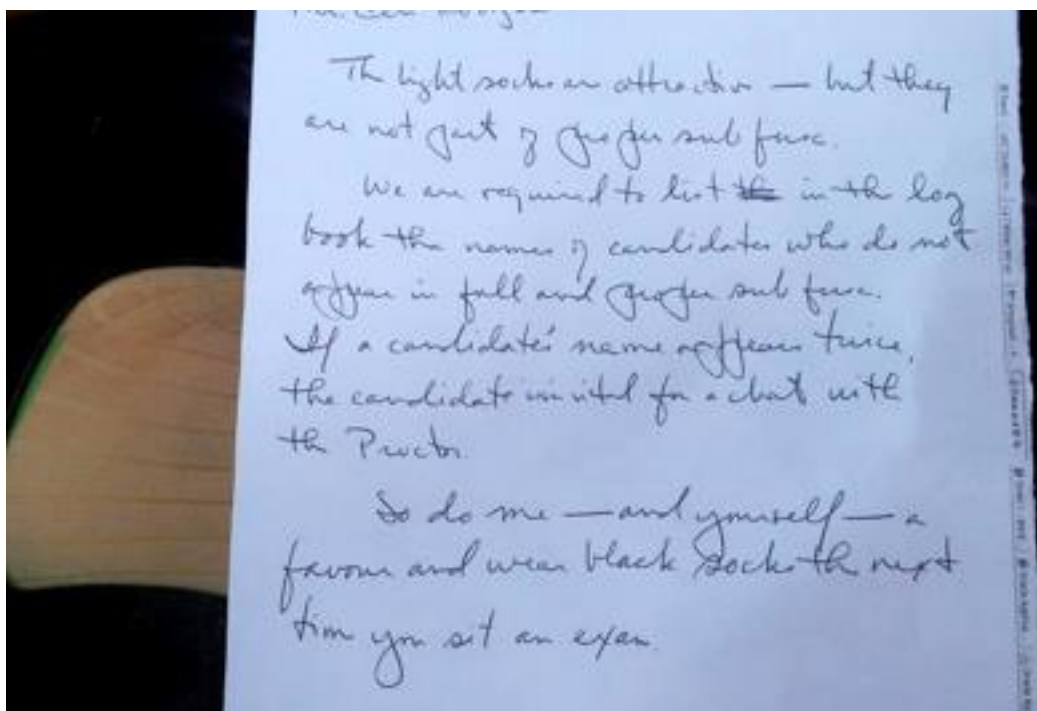 The light socks are attractive — but they
are not part of proper sub fusc.
We are required to list in the log
book the names of candidates who do not
appear in full and proper sub fusc.
If a candidate's name appears twice,
the candidate is invited for a chat with
the Proctor.
So do me — and yourself — a
favour and wear black socks the next
time you sit an exam.